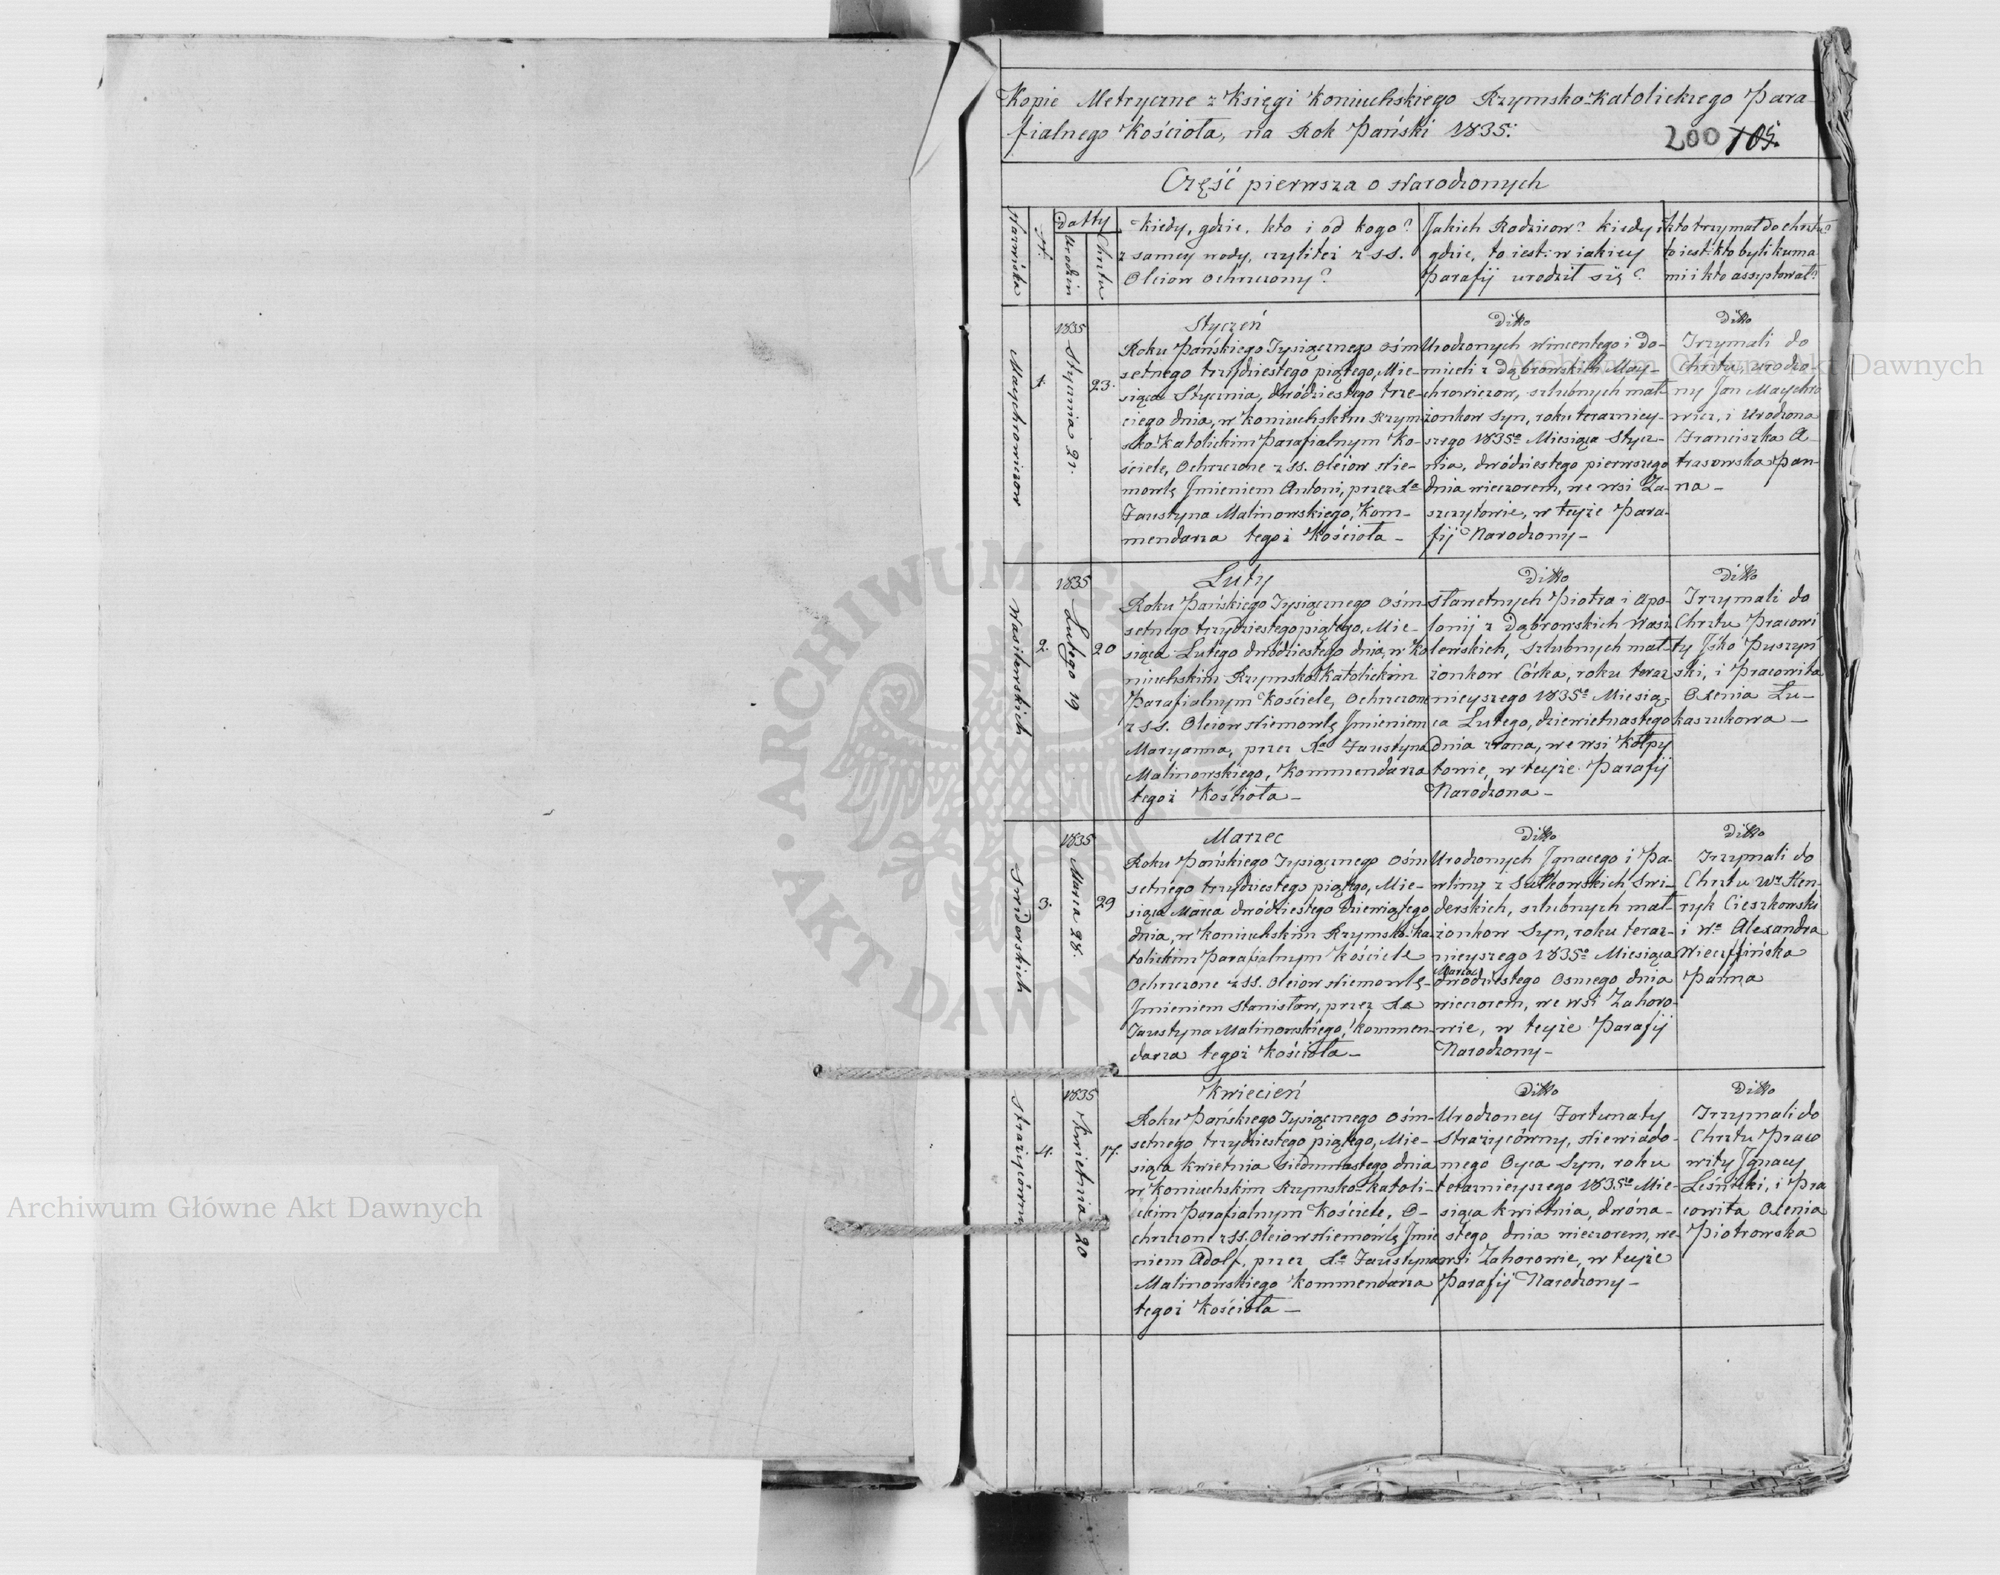 Kopie Metryczne z Księgi Koniuchskiego Rzymsko-Katolickiego Para-
fialnego Kościoła, na Rok Pański 1835.
200 105.
Część pierwsza o Narodzonych
Nazwiska
N.
Datty
Urodzin
Chrztu
Kiedy, gdzie, kto i od kogo?
z samey wody, czyliteż z SS.
Oleiow Ochrzczony?
Jakich Rodzicow? kiedy i
gdzie, to iest: w iakiey
Parafij urodził się?
kto trzymał do chrztu?
to iest: kto byli kuma-
mi i kto assystował?
Maychrowiczow
1.
1835
Stycznia 21.
23.
Styczeń
Roku Pańskiego Tysiącznego Ośm-
setnego trzydziestego piątego, Mie-
siąca Stycznia, dwódziestego trze-
ciego dnia, w Koniuchskim Rzym-
sko-Katolickim Parafialnym Ko-
ściele, Ochrzczone z SS. Oleiow Nie-
mowlę Jmieniem Antoni, przez Xa
Faustyna Malinowskiego, Kom-
mendarza tegoż Kościoła –
Ditto
Urodzonych Wincentego i Do-
miceli z Dąbrowskich May-
chrowiczow, szlubnych mał-
żonkow Syn, roku teraźniey-
szego 1835o Miesiąca Stycz-
nia, dwódziestego pierwszego
dnia wieczorem, we wsi Za-
szczytowie, w teyże Para-
fij Narodzony –
Ditto
Trzymali do
Chrztu, urodzo-
ny Jan Maychro
wicz, i Urodzona
Franciszka A-
trasowska Pan-
na –
Wasilewskich
2.
1835
Lutego 19
20
Luty
Roku Pańskiego Tysiącznego Ośm-
setnego trzydziestego piątego, Mie-
siąca Lutego dwódziestego dnia, w Ko
niuchskim Rzymsko Katolickim
Parafialnym Kościele, Ochrzczone
z SS. Oleiow Niemowlę Jmieniem
Maryanna, przez Xa Faustyna
Malinowskiego, Kommendarza
tegoż Kościoła –
Ditto
Sławetnych Piotra i Apo-
lonij z Dąbrowskich Wasi-
lewskich, szlubnych mał-
żonkow Córka, roku teraź
nieyszego 1835o Miesią-
ca Lutego, dziewietnastego
dnia zrana, we wsi Kołpy
towie, w teyże Parafij
Narodzona –
Ditto
Trzymali do
Chrztu Pracowi
ty Jśko Puszyń
ski, i Pracowita
Oxenia Łu-
kaszukowa –
Swiderskich
3.
1835
Marca 28.
29
Marzec
Roku Pańskiego Tysiącznego Ośm
setnego trzydziestego piątego, Mie-
siąca Marca dwódziestego Dziewiątego
dnia, w Koniuchskim Rzymsko-Ka-
tolickim Parafialnym Kościele
Ochrzczone z SS. Oleiow Niemowlę
Jmieniem Stanisław, przez Xa
Faustyna Malinowskiego, Kommen-
darza tegoż Kościoła –
Ditto
Urodzonych Jgnacego i Pa-
wliny z Sułkowskich Swi-
derskich, szlubnych mał-
żonkow Syn, roku teraź-
nieyszego 1835o Miesiąca
Marca
dwódziestego Osmego dnia
wieczorem, we wsi Zahoro-
wie, w teyże Parafij
Narodzony –
Ditto
Trzymali do
Chrztu Wny Hen-
ryk Cieszkowski
i Wa Alexandra
Panna
Strażycówny
4.
1835
Kwietnia 20
17.
Kwiecień
Roku Pańskiego Tysiącznego Ośm-
setnego trzydziestego piątego, Mie-
siąca Kwietnia siedmnastego dnia
w Koniuchskim Rzymsko-Katoli-
ckim Parafialnym Kościele, O-
chrzczone z SS. Oleiow Niemowlę Jmie
niem Adolf, przez Xa Faustyna
Malinowskiego Kommendarza
tegoż Kościoła –
Ditto
Urodzoney Fortunaty
Strażycówny, Niewiado-
mego Oyca Syn, roku
teraźnieyszego 1835o Mie-
siąca Kwietnia, dwóna-
stego dnia wieczorem, we
wsi Zahorowie, w teyże
Parafij Narodzony –
Ditto
Trzymali do
Chrztu Praco
wity Jgnacy
Leśnicki, i Pra
cowita Oxenia
Piotrowska
Archiwum Główne Akt Dawnych
Archiwum Główne Akt Dawnych